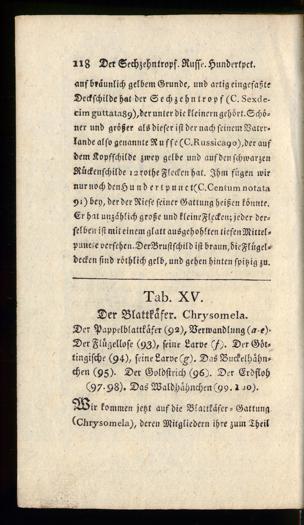 118 Der Sechzehntropf. Russe. Hundertpct.
auf bräunlich gelbem Grunde, und artig eingefaßte
Deckschilde hat der Sechzehntropf (C. Sexde-
cim guttata 89), der unter die kleinern gehört. Schö-
ner und größer als dieser ist der nach seinem Vater-
lande also genannte Russe (C. Russica 90), der auf
dem Kopfschilde zwey gelbe und auf den schwarzen
Rückenschilde 12 rothe Flecken hat. Ihm fügen wir
nur noch den Hundertpunct (C. Centum notata
91) bey, der der Riese seiner Gattung heißen könnte.
Er hat unzählich große und kleine Flecken; jeder der-
selben ist mit einem glatt ausgehohlten tiefen Mittel-
puncte versehen. Der Brustschild ist braun, die Flügel-
decken sind röthlich gelb, und gehen hinten spitzig zu.
Tab. XV.
Der Blattkäfer. Chrysomela.
Der Pappelblattkäfer (92), Verwandlung (a-e).
Der Flügellose (93), seine Larve (f). Der Göt-
tingische (94), seine Larve (g). Das Buckelhähn-
chen (95). Der Goldstrich (96). Der Erdfloh
(97-98). Das Waldhähnchen (99. 100).
Wir kommen jetzt auf die Blattkäfer-Gattung
(Chrysomela), deren Mitgliedern ihre zum Theil